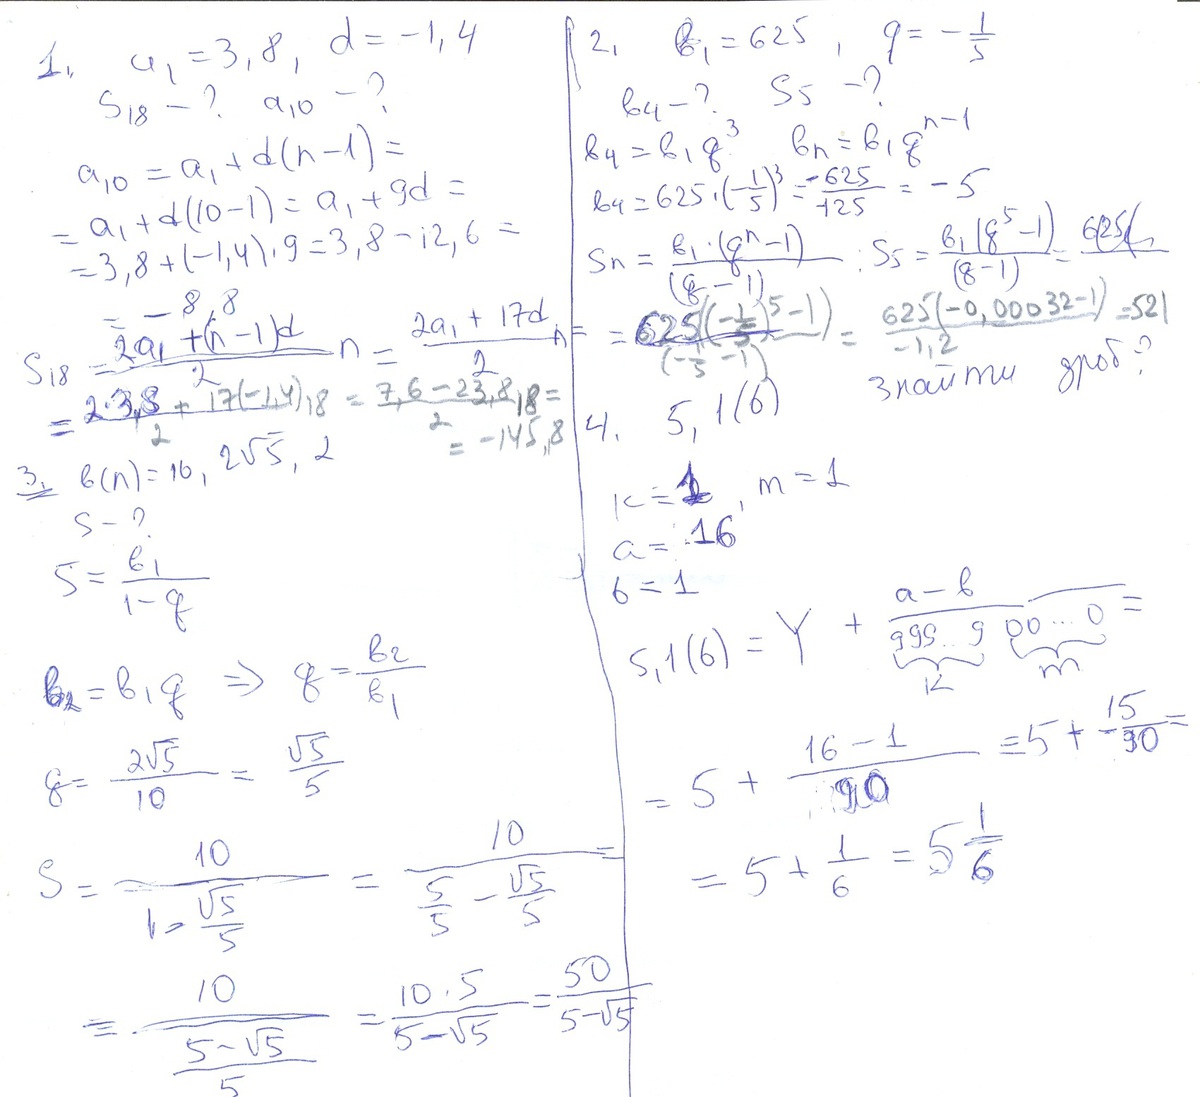 1. a₁ = 3,8, d = -1,4
S₁₈ - ? a₁₀ - ?
a₁₀ = a₁ + d(n-1) =
= a₁ + d(10-1) = a₁ + 9d =
= 3,8 + (-1,4)·9 = 3,8 - 12,6 =
= -8,8
S₁₈ = (2a₁ + (n-1)d)/2 n = (2a₁ + 17d)/2 n =
= (2·3,8 + 17(-1,4))/2 ·18 = (7,6 - 23,8)/2 ·18 =
= -145,8
3. в(n) = 10, 2√5, 2
S - ?
S = в₁/(1-q)
в₂ = в₁q ⇒ q = в₂/в₁
q = 2√5/10 = √5/5
S = 10/(1 - √5/5) = 10/(5/5 - √5/5) =
= 10/((5-√5)/5) = 10·5/(5-√5) = 50/(5-√5)
2. в₁ = 625, q = -1/5
в₄ - ? S₅ - ?
в₄ = в₁q³ вn = в₁qⁿ⁻¹
в₄ = 625·(-1/5)³ = -625/125 = -5
Sn = в₁·(qⁿ-1)/(q-1) ; S₅ = в₁(q⁵-1)/(q-1) = 625(
= 625((-1/5)⁵-1)/(-1/5-1) = 625(-0,00032-1)/-1,2 = 521
знайти дроб?
4. 5,1(6)
k = 1, m = 1
a = 16
б = 1
5,1(6) = Y + (a-b)/(999...9 00...0) =
k m
= 5 + (16-1)/90 = 5 + 15/90 =
= 5 + 1/6 = 5 1/6